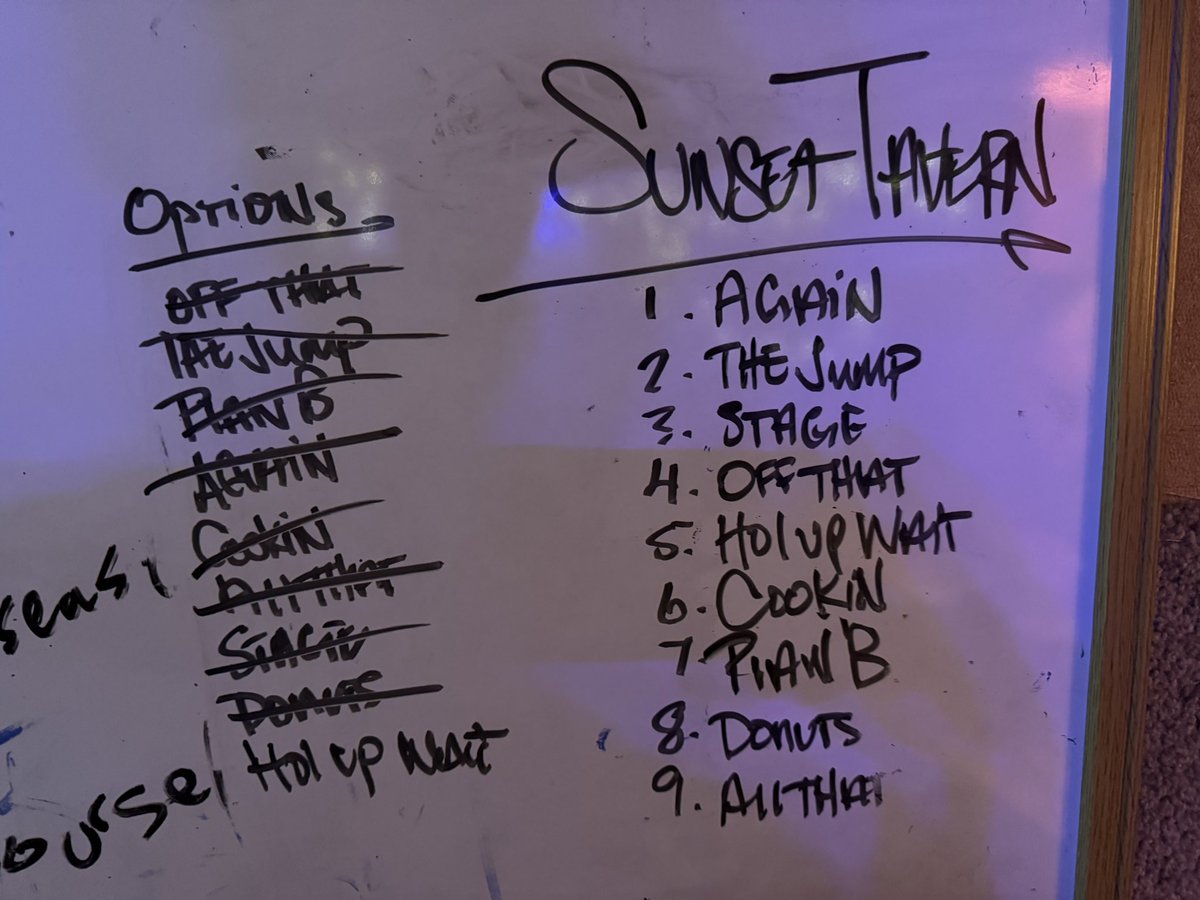 Options
OFF THAT
THE JUMP
PLAN B
AGAIN
COOKIN
All THAT
STAGE
DONUTS
Hol up WAIT
seas,
ourse,
SUNSET TAVERN
1. AGAIN
2. THE JUMP
3. STAGE
4. OFF THAT
5. Hol up WAIT
6. COOKIN
7. PlAN B
8. DONUTS
9. All THAT